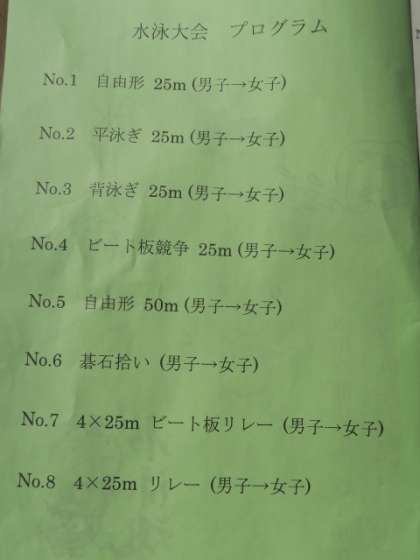 水泳大会 プログラム
No.1 自由形 25m (男子→女子)
No.2 平泳ぎ 25m (男子→女子)
No.3 背泳ぎ 25m (男子→女子)
No.4 ビート板競争 25m (男子→女子)
No.5 自由形 50m (男子→女子)
No.6 碁石拾い (男子→女子)
No.7 4×25m ビート板リレー (男子→女子)
No.8 4×25m リレー (男子→女子)